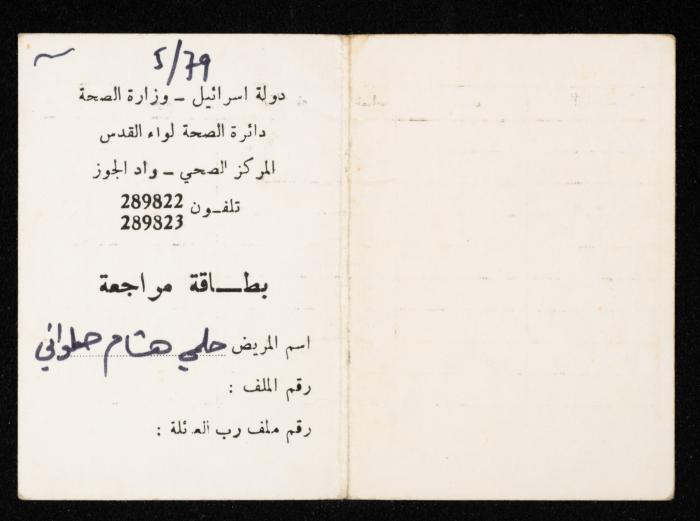 5/79
دولة اسرائيل - وزارة الصحة
دائرة الصحة لواء القدس
المركز الصحي - واد الجوز
تلفـون 289822
289823
بطـــاقة مراجعة
اسم المريض حلمي هشام حلواني
رقم الملف :
رقم ملف رب العائلة :